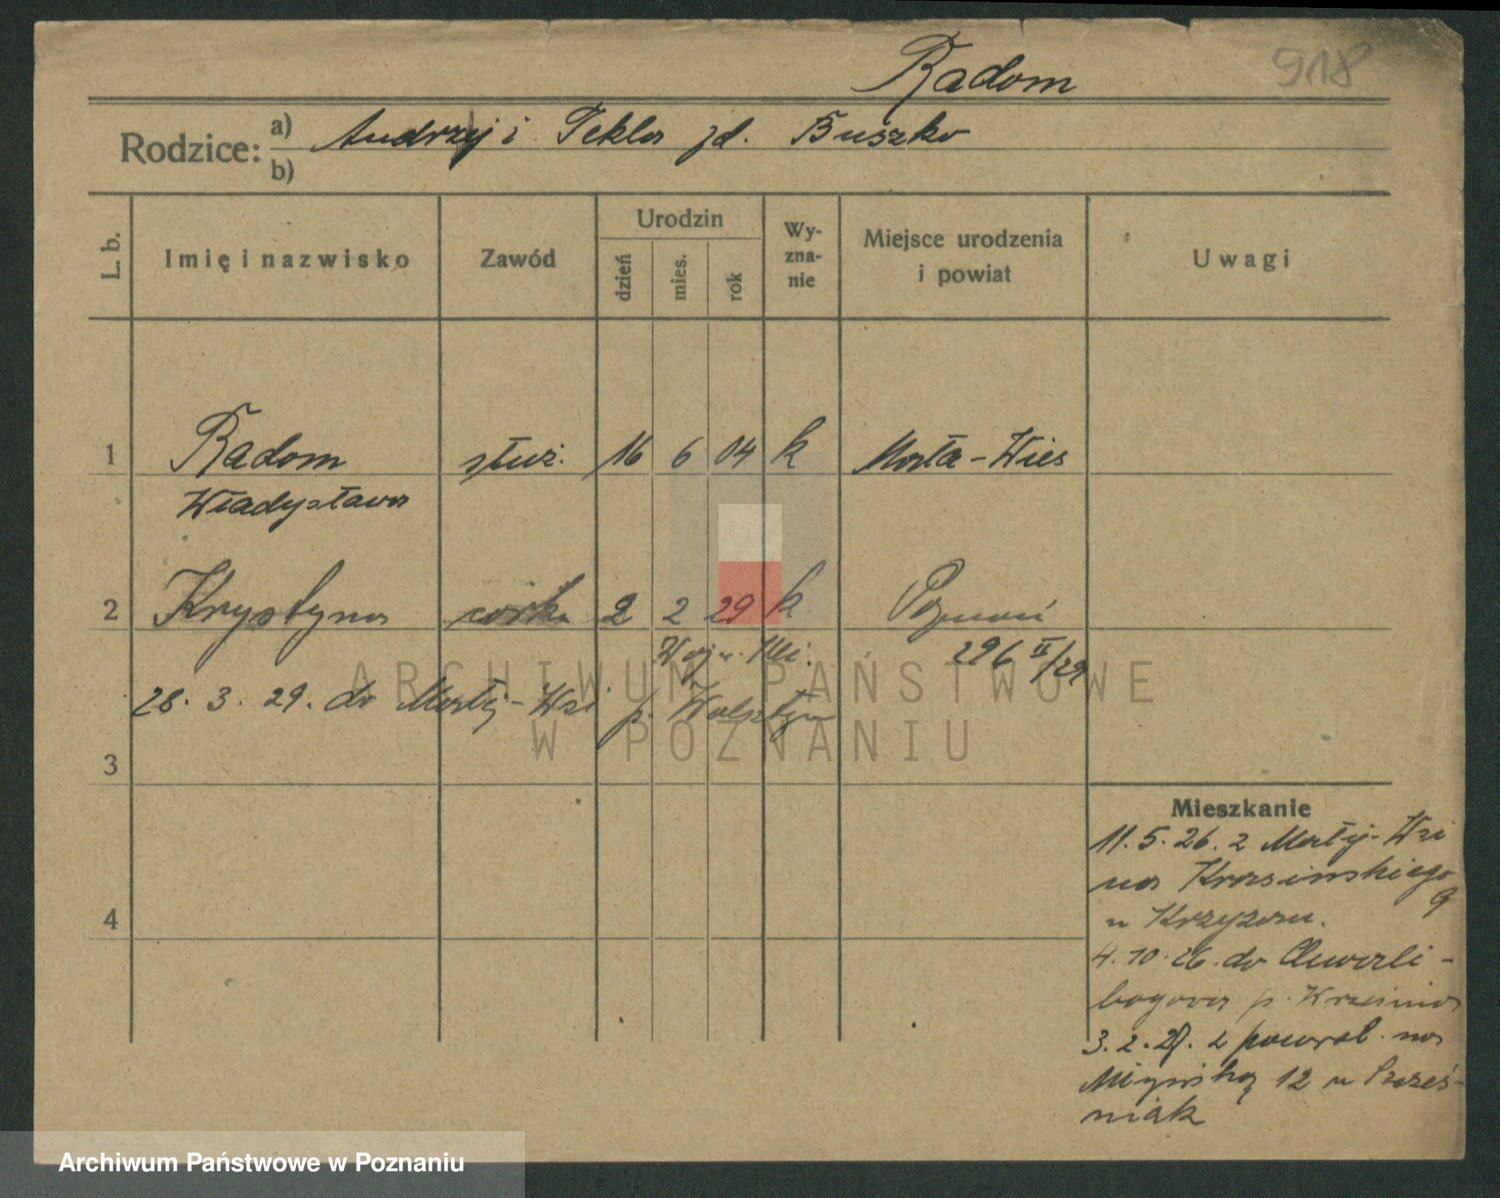 Radom
918
Rodzice: a) Andrzej i Tekla zd. Buszko
b)
L. b.
Imię i nazwisko
Zawód
Urodzin
dzień
mies.
rok
Wy-
zna-
nie
Miejsce urodzenia
i powiat
Uwagi
1 Radom służ. 16 6 04 k Mała-Wieś
Władysława
2 Krystyna córka 2 2 29 k Poznań
296 II/29
28. 3. 29. do Małej-Wsi p. Wolsztyn
3
4
Mieszkanie
11. 5. 26. z Małej-Wsi
na Krasińskiego
9
u
4. 10. 26. do Chwali-
bogowa p. Września
3. 2. z powrot. na
12 u
niak
ARCHIWUM PAŃSTWOWE
W POZNANIU
Archiwum Państwowe w Poznaniu